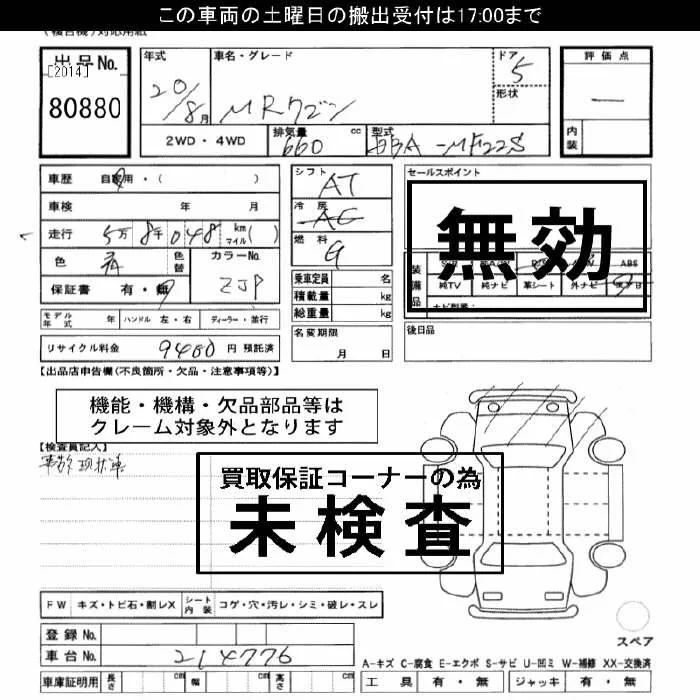 この車両の土曜日の搬出受付は17:00まで
出品No.
[2014]
80880
年式
20/8月
車名・グレード
MRワゴン
ドア
5
形状
評価点
—
内装
2WD・4WD
排気量
660 cc
型式
DBA-MF22S
車歴 自家用・( )
車検 年 月
走行 5万8千048 km マイル( )
色
色替
カラーNo.
ZJP
保証書 有・無
シフト
AT
冷房
AC
燃料
G
乗車定員 名
積載量 kg
総重量 kg
セールスポイント
無効
装備品
ABS
純TV
純ナビ
革シート
外ナビ
モデル年式 年
ハンドル 左・右
ディーラー・並行
名変期限
月 日
後日品
リサイクル料金 9460 円 預託済
【出品店申告欄(不良箇所・欠品・注意事項等)】
機能・機構・欠品部品等は
クレーム対象外となります
【検査員記入】
事故現状車
買取保証コーナーの為
未検査
FW キズ・トビ石・割レX
シート内装 コゲ・穴・汚レ・シミ・破レ・スレ
登録No.
車台No. 214776
スペア
A-キズ C-腐食 E-エクボ S-サビ U-凹ミ W-補修 XX-交換済
車庫証明用 長さ cm 幅 cm 高さ cm
工具 有・無 ジャッキ 有・無